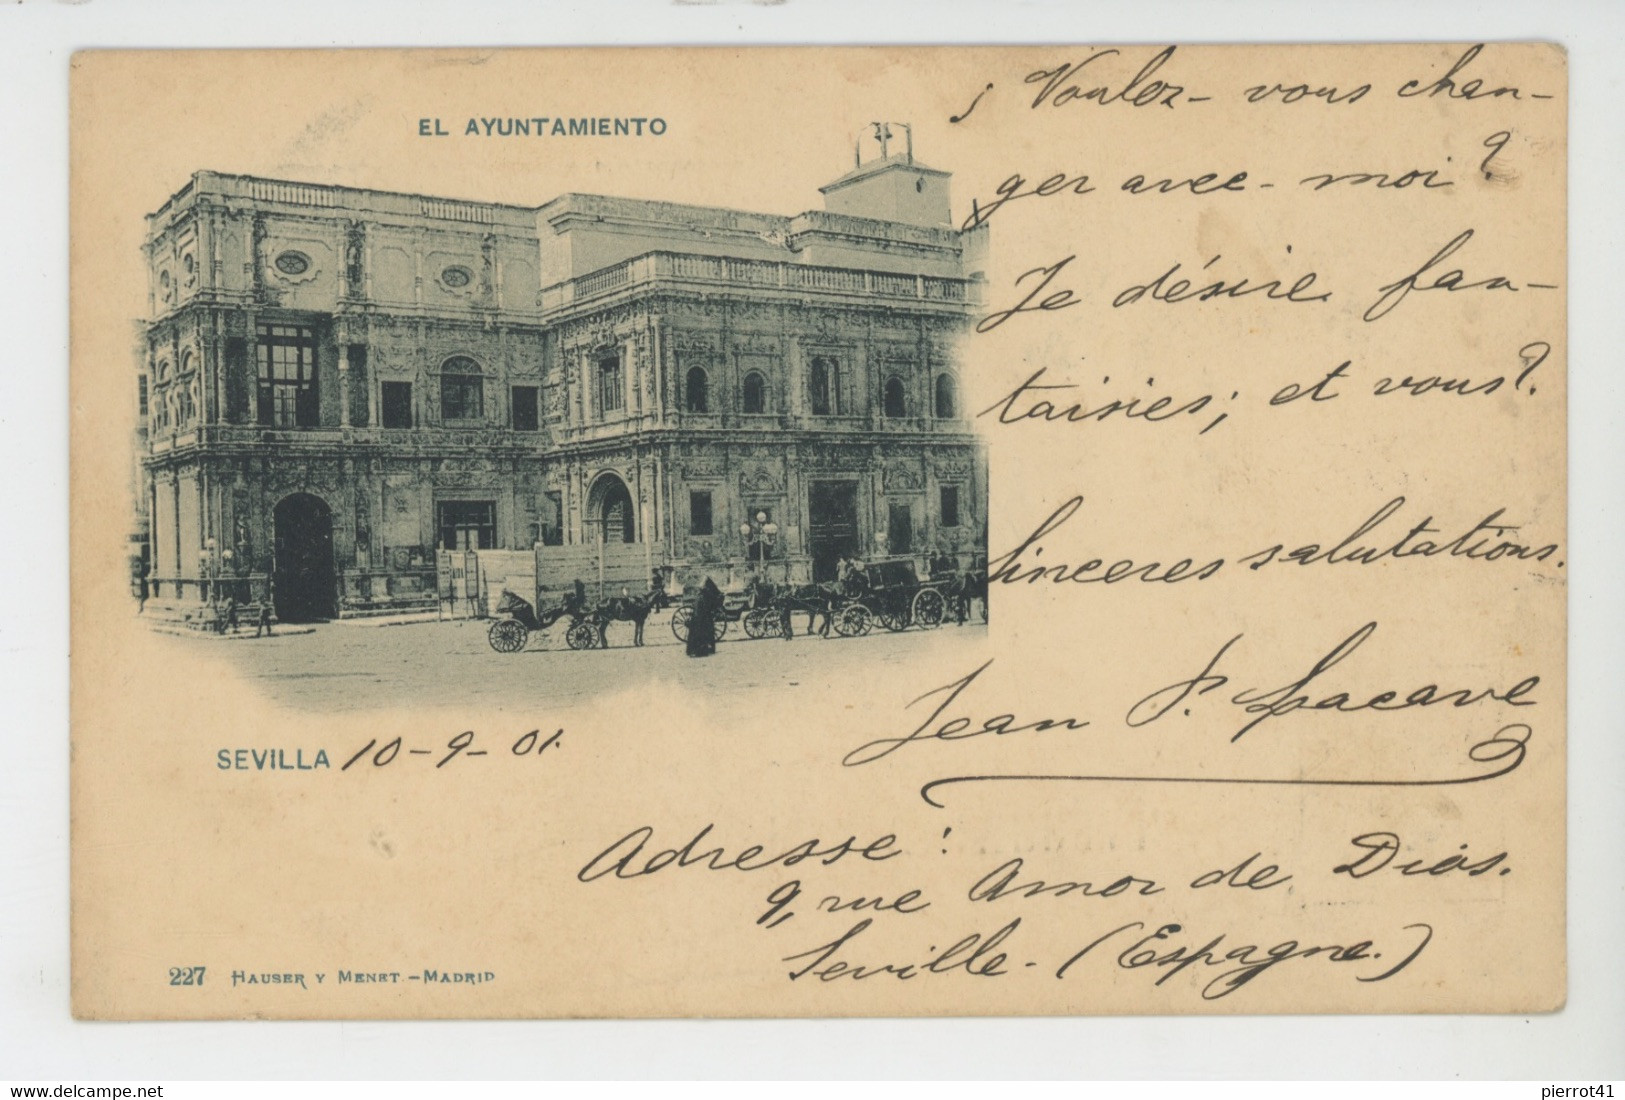 EL AYUNTAMIENTO
¡Voulez-vous chan-
ger avec-moi?
Je désire fan-
taisies; et vous?
Sinceres salutations.
Jean P. Lacave
SEVILLA 10-9-01.
Adresse:
9, rue Amor de Dios.
Seville-(Espagne.)
227 HAUSER Y MENET.-MADRID
delcampe.net
pierrot41